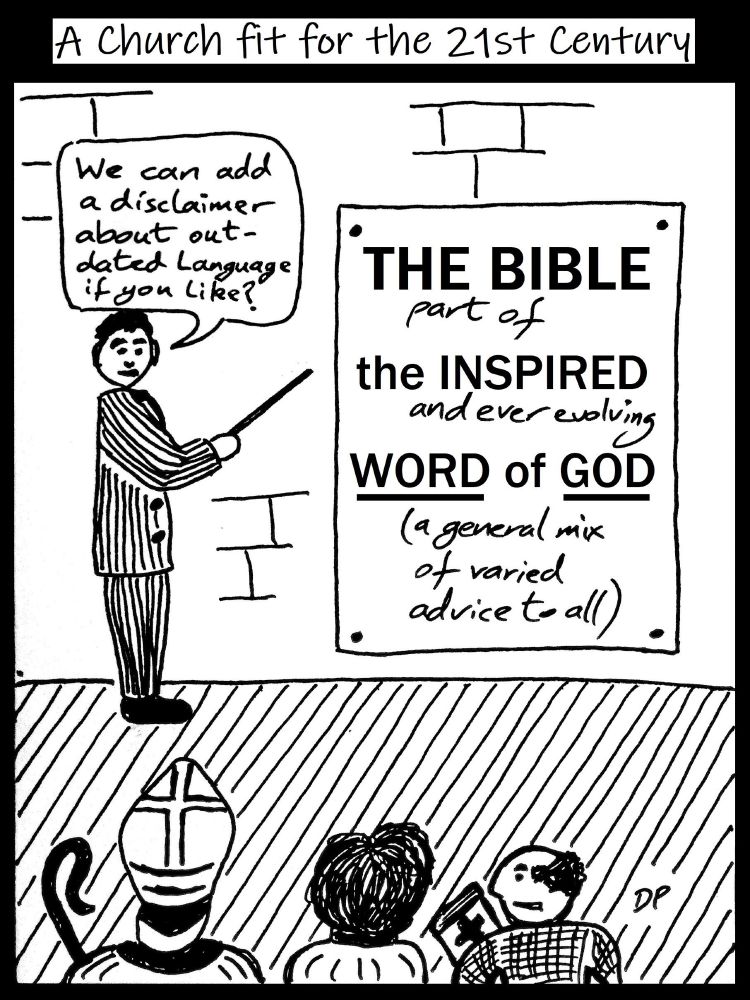 A Church fit for the 21st Century
We can add
a disclaimer
about out-
dated Language
if you like?
THE BIBLE
part of
the INSPIRED
and ever evolving
WORD of GOD
(a general mix
of varied
advice to all)
DP